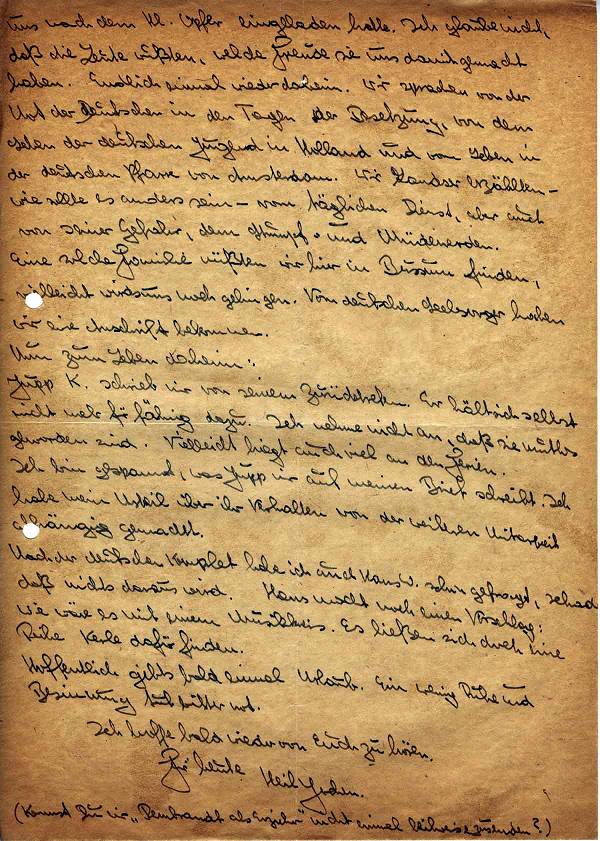 uns nach dem Kl. Opfer eingeladen hatte. Ich glaube nicht,
daß die Leute wüßten, welche Freude sie uns damit gemacht
haben. Endlich einmal wieder daheim. Wir sprachen von der
Not der Deutschen in den Tagen der Besetzung, von dem
Leben der deutschen Jugend in Holland und vom Leben in
der deutschen Pfarre von Amsterdam. Wir Landser erzählten –
wie sollte es anders sein – vom täglichen Dienst, aber auch
von seiner Gefahr, dem Stumpf- und Müdewerden.
Eine solche Familie müßten wir hier in Bussum finden,
vielleicht wirds uns noch gelingen. Vom deutschen Seelsorger haben
wir eine Anschrift bekommen.
Nun zum Leben daheim:
Jupp K. schrieb mir von seinem Zurücktreten. Er hält sich selbst
nicht mehr für fähig dazu. Ich nehme nicht an, daß sie mutlos
geworden sind. Vielleicht liegt auch viel an den Ferien.
Ich bin gespannt, was Jupp mir auf meinen Brief schreibt. Ich
habe mein Urteil über ihr Verhalten von der weiteren Mitarbeit
abhängig gemacht.
Nach der deutschen Komplet habe ich auch Hans W. schon gefragt, schade
daß nichts daraus wird. Hans macht noch einen Vorschlag:
wie wäre es mit einem Musikkreis. Es ließen sich doch eine
Reihe Kerle dafür finden.
Hoffentlich gibts bald einmal Urlaub. Ein wenig Ruhe und
Besinnung tut bitter not.
Ich hoffe bald wieder von Euch zu hören.
Für heute Heil
(Kannst Du mir „Rembrandt als Erzieher" nicht einmal leihweise zusenden?)